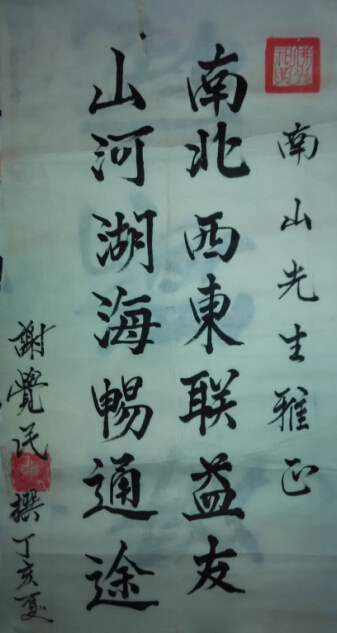 南山先生雅正
南北西東联益友
山河湖海暢通途
謝覺民撰丁亥夏